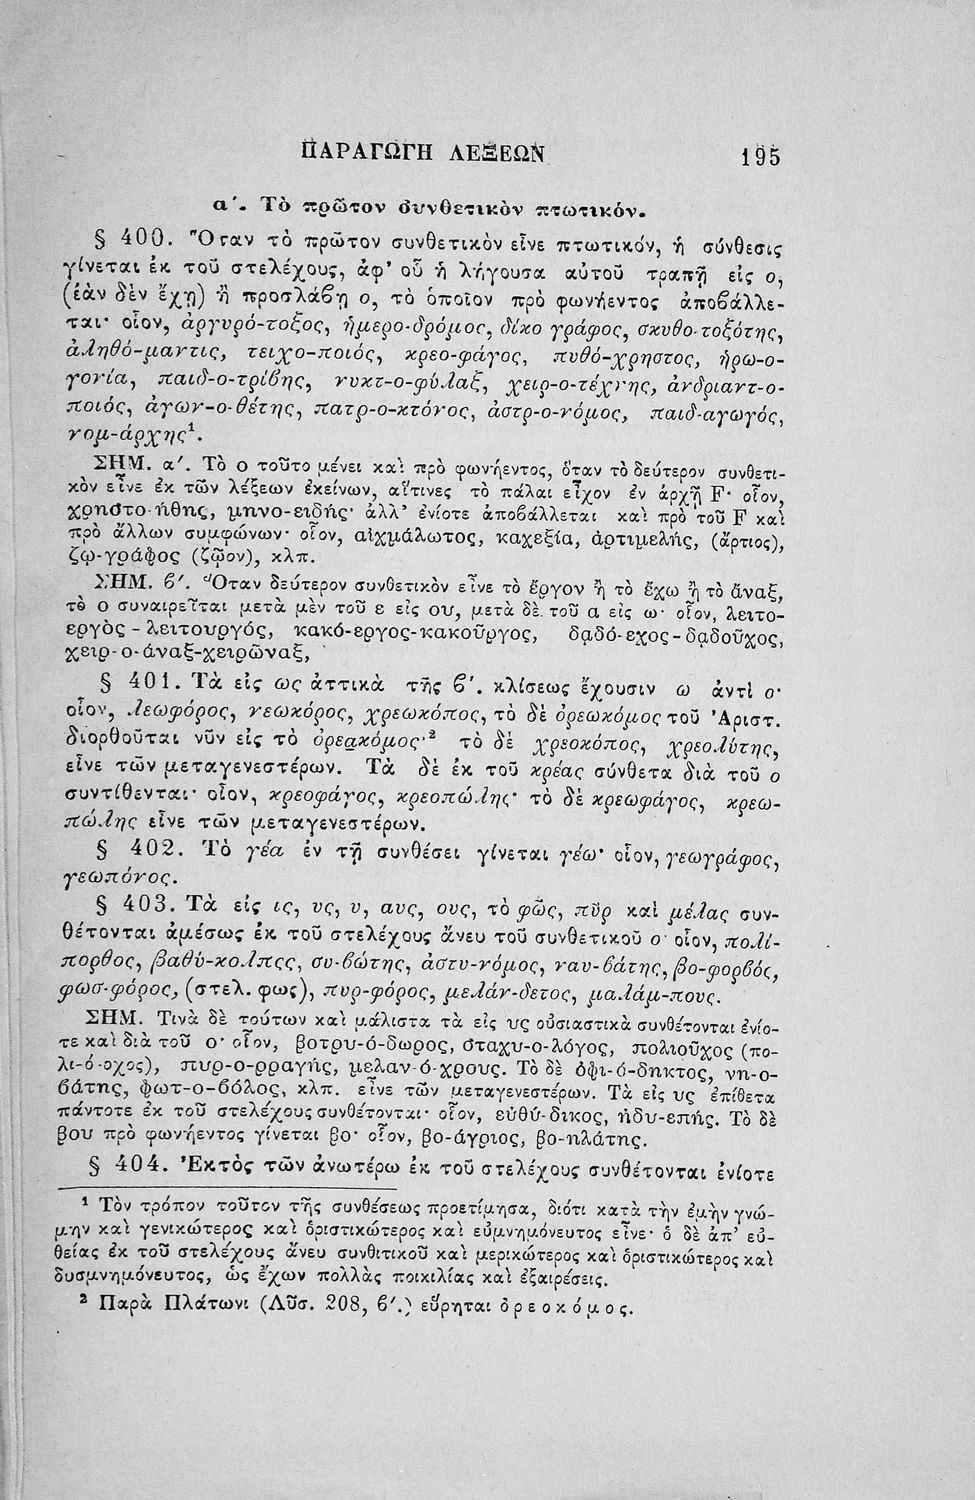 ΠΑΡΑΓΩΓΗ ΛΕΞΕΩΝ 195
α΄. Τὸ πρῶτον συνθετικὸν πτωτικόν.
§ 400. Ὅταν τὸ πρῶτον συνθετικὸν εἶνε πτωτικόν, ἡ σύνθεσις
γίνεται ἐκ τοῦ στελέχους, ἀφ’ οὗ ἡ λήγουσα αὐτοῦ τραπῇ εἰς ο,
(ἐὰν δὲν ἔχῃ) ἢ προσλάβῃ ο, τὸ ὁποῖον πρὸ φωνήεντος ἀποβάλλε-
ται· οἷον, ἀργυρό-τοξος, ἡμερο-δρόμος, δίκο γράφος, σκυθο-τοξότης,
ἀληθό-μαντις, τειχο-ποιός, κρεο-φάγος, πυθό-χρηστος, ἡρω-ο-
γονία, παιδ-ο-τρίβης, νυκτ-ο-φύλαξ, χειρ-ο-τέχνης, ἀνδριαντ-ο-
ποιός, ἀγων-ο-θέτης, πατρ-ο-κτόνος, ἀστρ-ο-νόμος, παιδ-αγωγός,
νομ-άρχης¹.
ΣΗΜ. α΄. Τὸ ο τοῦτο μένει καὶ πρὸ φωνήεντος, ὅταν τὸ δεύτερον συνθετι-
κὸν εἶνε ἐκ τῶν λέξεων ἐκείνων, αἵτινες τὸ πάλαι εἶχον ἐν ἀρχῇ F· οἷον,
χρηστο-ήθης, μηνο-ειδής· ἀλλ’ ἐνίοτε ἀποβάλλεται καὶ πρὸ τοῦ F καὶ
πρὸ ἄλλων συμφώνων· οἷον, αἰχμάλωτος, καχεξία, ἀρτιμελής, (ἄρτιος),
ζω-γράφος (ζῷον), κλπ.
ΣΗΜ. β΄. Ὅταν δεύτερον συνθετικὸν εἶνε τὸ ἔργον ἢ τὸ ἔχω ἢ τὸ ἄναξ,
τὸ ο συναιρεῖται μετὰ μὲν τοῦ ε εἰς ου, μετὰ δὲ τοῦ α εἰς ω· οἷον, λειτο-
εργὸς - λειτουργός, κακό-εργος-κακοῦργος, δᾳδό-εχος - δᾳδοῦχος,
χειρ-ο-άναξ-χειρῶναξ,
§ 401. Τὰ εἰς ως ἀττικὰ τῆς β΄. κλίσεως ἔχουσιν ω ἀντὶ ο·
οἷον, λεωφόρος, νεωκόρος, χρεωκόπος, τὸ δὲ ὀρεωκόμος τοῦ Ἀριστ.
διορθοῦται νῦν εἰς τὸ ὀρεᾳκόμος·² τὸ δὲ χρεοκόπος, χρεολύτης,
εἶνε τῶν μεταγενεστέρων. Τὰ δὲ ἐκ τοῦ κρέας σύνθετα διὰ τοῦ ο
συντίθενται· οἷον, κρεοφάγος, κρεοπώλης· τὸ δὲ κρεωφάγος, κρεω-
πώλης εἶνε τῶν μεταγενεστέρων.
§ 402. Τὸ γέα ἐν τῇ συνθέσει γίνεται γέω· οἷον, γεωγράφος,
γεωπόνος.
§ 403. Τὰ εἰς ις, υς, υ, αυς, ους, τὸ φῶς, πῦρ καὶ μέλας συν-
θέτονται ἀμέσως ἐκ τοῦ στελέχους ἄνευ τοῦ συνθετικοῦ ο· οἷον, πολί-
πορθος, βαθύ-κολπος, συ-βώτης, ἀστυ-νόμος, ναυ-βάτης, βο-φορβός,
φωσ-φόρος, (στελ. φως), πυρ-φόρος, μελάν-δετος, μαλάμ-πους.
ΣΗΜ. Τινὰ δὲ τούτων καὶ μάλιστα τὰ εἰς υς οὐσιαστικὰ συνθέτονται ἐνίο-
τε καὶ διὰ τοῦ ο· οἷον, βοτρυ-ό-δωρος, σταχυ-ο-λόγος, πολιοῦχος (πο-
λι-ό-οχος), πυρ-ο-ρραγής, μελαν-ό-χρους. Τὸ δὲ ὀφι-ό-δηκτος, νη-ο-
βάτης, φωτ-ο-βόλος, κλπ. εἶνε τῶν μεταγενεστέρων. Τὰ εἰς υς ἐπίθετα
πάντοτε ἐκ τοῦ στελέχους συνθέτονται· οἷον, εὐθύ-δικος, ἡδυ-επής. Τὸ δὲ
βου πρὸ φωνήεντος γίνεται βο· οἷον, βο-άγριος, βο-ηλάτης.
§ 404. Ἐκτὸς τῶν ἀνωτέρω ἐκ τοῦ στελέχους συνθέτονται ἐνίοτε
¹ Τὸν τρόπον τοῦτον τῆς συνθέσεως προετίμησα, διότι κατὰ τὴν ἐμὴν γνώ-
μην καὶ γενικώτερος καὶ ὁριστικώτερος καὶ εὐμνημόνευτος εἶνε· ὁ δὲ ἀπ’ εὐ-
θείας ἐκ τοῦ στελέχους ἄνευ συνθιτικοῦ καὶ μερικώτερος καὶ ὁριστικώτερος καὶ
δυσμνημόνευτος, ὡς ἔχων πολλὰς ποικιλίας καὶ ἐξαιρέσεις.
² Παρὰ Πλάτωνι (Λῦσ. 208, β΄.) εὕρηται ὀρεοκόμος.